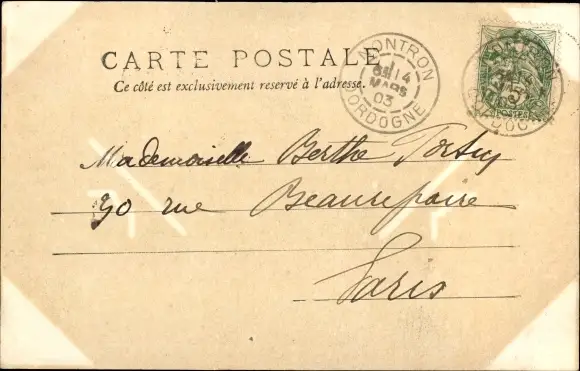 CARTE POSTALE
Ce côté est exclusivement reservé à l'adresse.
NONTRON
14
MARS
03
DORDOGNE
Mademoiselle Berthe
rue Beaurepaire
Paris